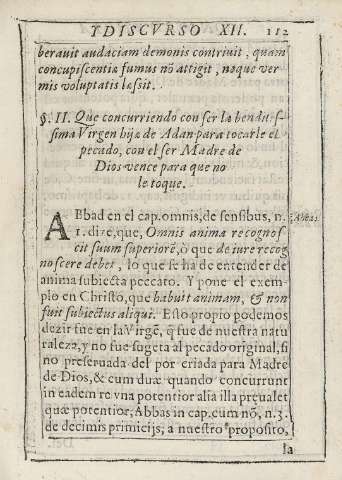 YDISCVRSO XII. 112
berauit audaciam demonis contriuit, quam
concupiscentiæ fumus nõ attigit, neque ver
mis voluptatis læssit.
§. II. Que concurriendo con ser la bendits-
sima Virgen hija de Adan para tocarle el
pecado, con el ser Madre de
Dios vence para que no
le toque.
ABbad en el cap. omnis, de sensibus, n.
1. dize, que, Omnis anima recognos
cit suum superiorẽ, ò que de iure recog
noscere debet, lo que se ha de entender de
anima subiecta peccato. Y pone el exem-
plo en Christo, que habuit animam, & non
fuit subiectus aliqui. Esto propio podemos
dezir fue en la Virgẽ, q̃ fue de nuestra natu
raleza, y no fue sugeta al pecado original, si
no preseruada del por criada para Madre
de Dios, & cum duæ quando concurrunt
in eadem re vna potentior alia illa prçualet
quæ potentior, Abbas in cap. cum nõ, n. 3.
de decimis primicijs, a nuestro proposito,
la